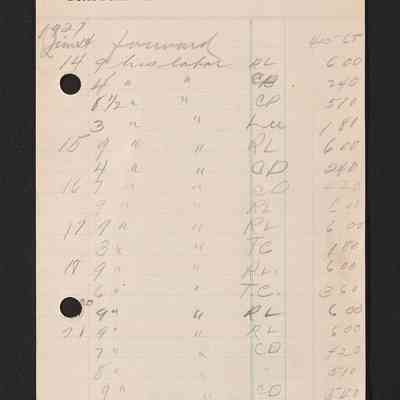 1927
forward
14 9 hrs labor RL 6 00
4 " " CD 2 40
8 1/2 " " CD 5 10
3 " " Lee 1 80
15 9 " " RL 6 00
4 " " CD 2 40
16 7 " " CD 4 20
9 " " RL 6 00
17 9 " " RL 6 00
3 " " TC 1 80
18 9 " " RL. 6 00
6 " " T.C. 3 60
20 9 " " RL 6 00
21 9 " " RL 6 00
7 " " CD 4 20
8 " " 5 10
9 " " CD